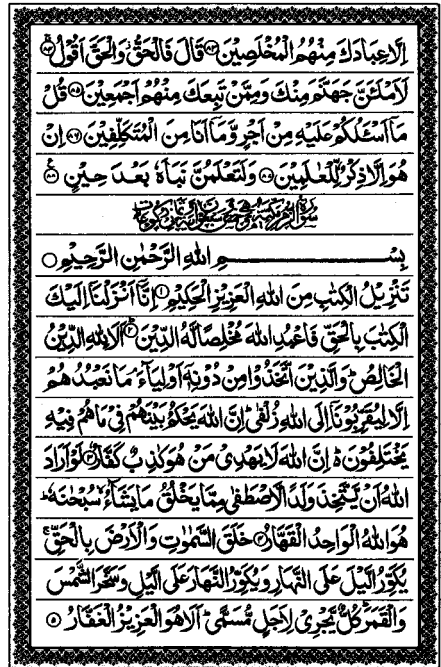 اِلَّا عِبَادَكَ مِنْهُمُ الْمُخْلَصِيْنَ ﴿۸۳﴾ قَالَ فَالْحَقُّ وَالْحَقَّ اَقُوْلُ ﴿۸۴﴾
لَاَمْلَئَنَّ جَهَنَّمَ مِنْكَ وَمِمَّنْ تَبِعَكَ مِنْهُمْ اَجْمَعِيْنَ ﴿۸۵﴾ قُلْ
مَاۤ اَسْئَلُكُمْ عَلَيْهِ مِنْ اَجْرٍ وَّمَاۤ اَنَا مِنَ الْمُتَكَلِّفِيْنَ ﴿۸۶﴾ اِنْ
هُوَ اِلَّا ذِكْرٌ لِّلْعٰلَمِيْنَ ﴿۸۷﴾ وَلَتَعْلَمُنَّ نَبَاَهٗ بَعْدَ حِيْنٍ ﴿۸۸﴾
بِسْمِ اللهِ الرَّحْمٰنِ الرَّحِيْمِ
تَنْزِيْلُ الْكِتٰبِ مِنَ اللهِ الْعَزِيْزِ الْحَكِيْمِ ﴿۱﴾ اِنَّاۤ اَنْزَلْنَاۤ اِلَيْكَ
الْكِتٰبَ بِالْحَقِّ فَاعْبُدِ اللهَ مُخْلِصًا لَّهُ الدِّيْنَ ﴿۲﴾ اَلَا لِلّٰهِ الدِّيْنُ
الْخَالِصُ ؕ وَالَّذِيْنَ اتَّخَذُوْا مِنْ دُوْنِهٖۤ اَوْلِيَآءَ ۘ مَا نَعْبُدُهُمْ
اِلَّا لِيُقَرِّبُوْنَاۤ اِلَى اللهِ زُلْفٰى ؕ اِنَّ اللهَ يَحْكُمُ بَيْنَهُمْ فِيْ مَا هُمْ فِيْهِ
يَخْتَلِفُوْنَ ؕ اِنَّ اللهَ لَا يَهْدِيْ مَنْ هُوَ كٰذِبٌ كَفَّارٌ ﴿۳﴾ لَوْ اَرَادَ
اللهُ اَنْ يَّتَّخِذَ وَلَدًا لَّاصْطَفٰى مِمَّا يَخْلُقُ مَا يَشَآءُ ۙ سُبْحٰنَهٗ ؕ
هُوَ اللهُ الْوَاحِدُ الْقَهَّارُ ﴿۴﴾ خَلَقَ السَّمٰوٰتِ وَالْاَرْضَ بِالْحَقِّ ۚ
يُكَوِّرُ الَّيْلَ عَلَى النَّهَارِ وَيُكَوِّرُ النَّهَارَ عَلَى الَّيْلِ وَسَخَّرَ الشَّمْسَ
وَالْقَمَرَ ؕ كُلٌّ يَّجْرِيْ لِاَجَلٍ مُّسَمًّى ؕ اَلَا هُوَ الْعَزِيْزُ الْغَفَّارُ ﴿۵﴾